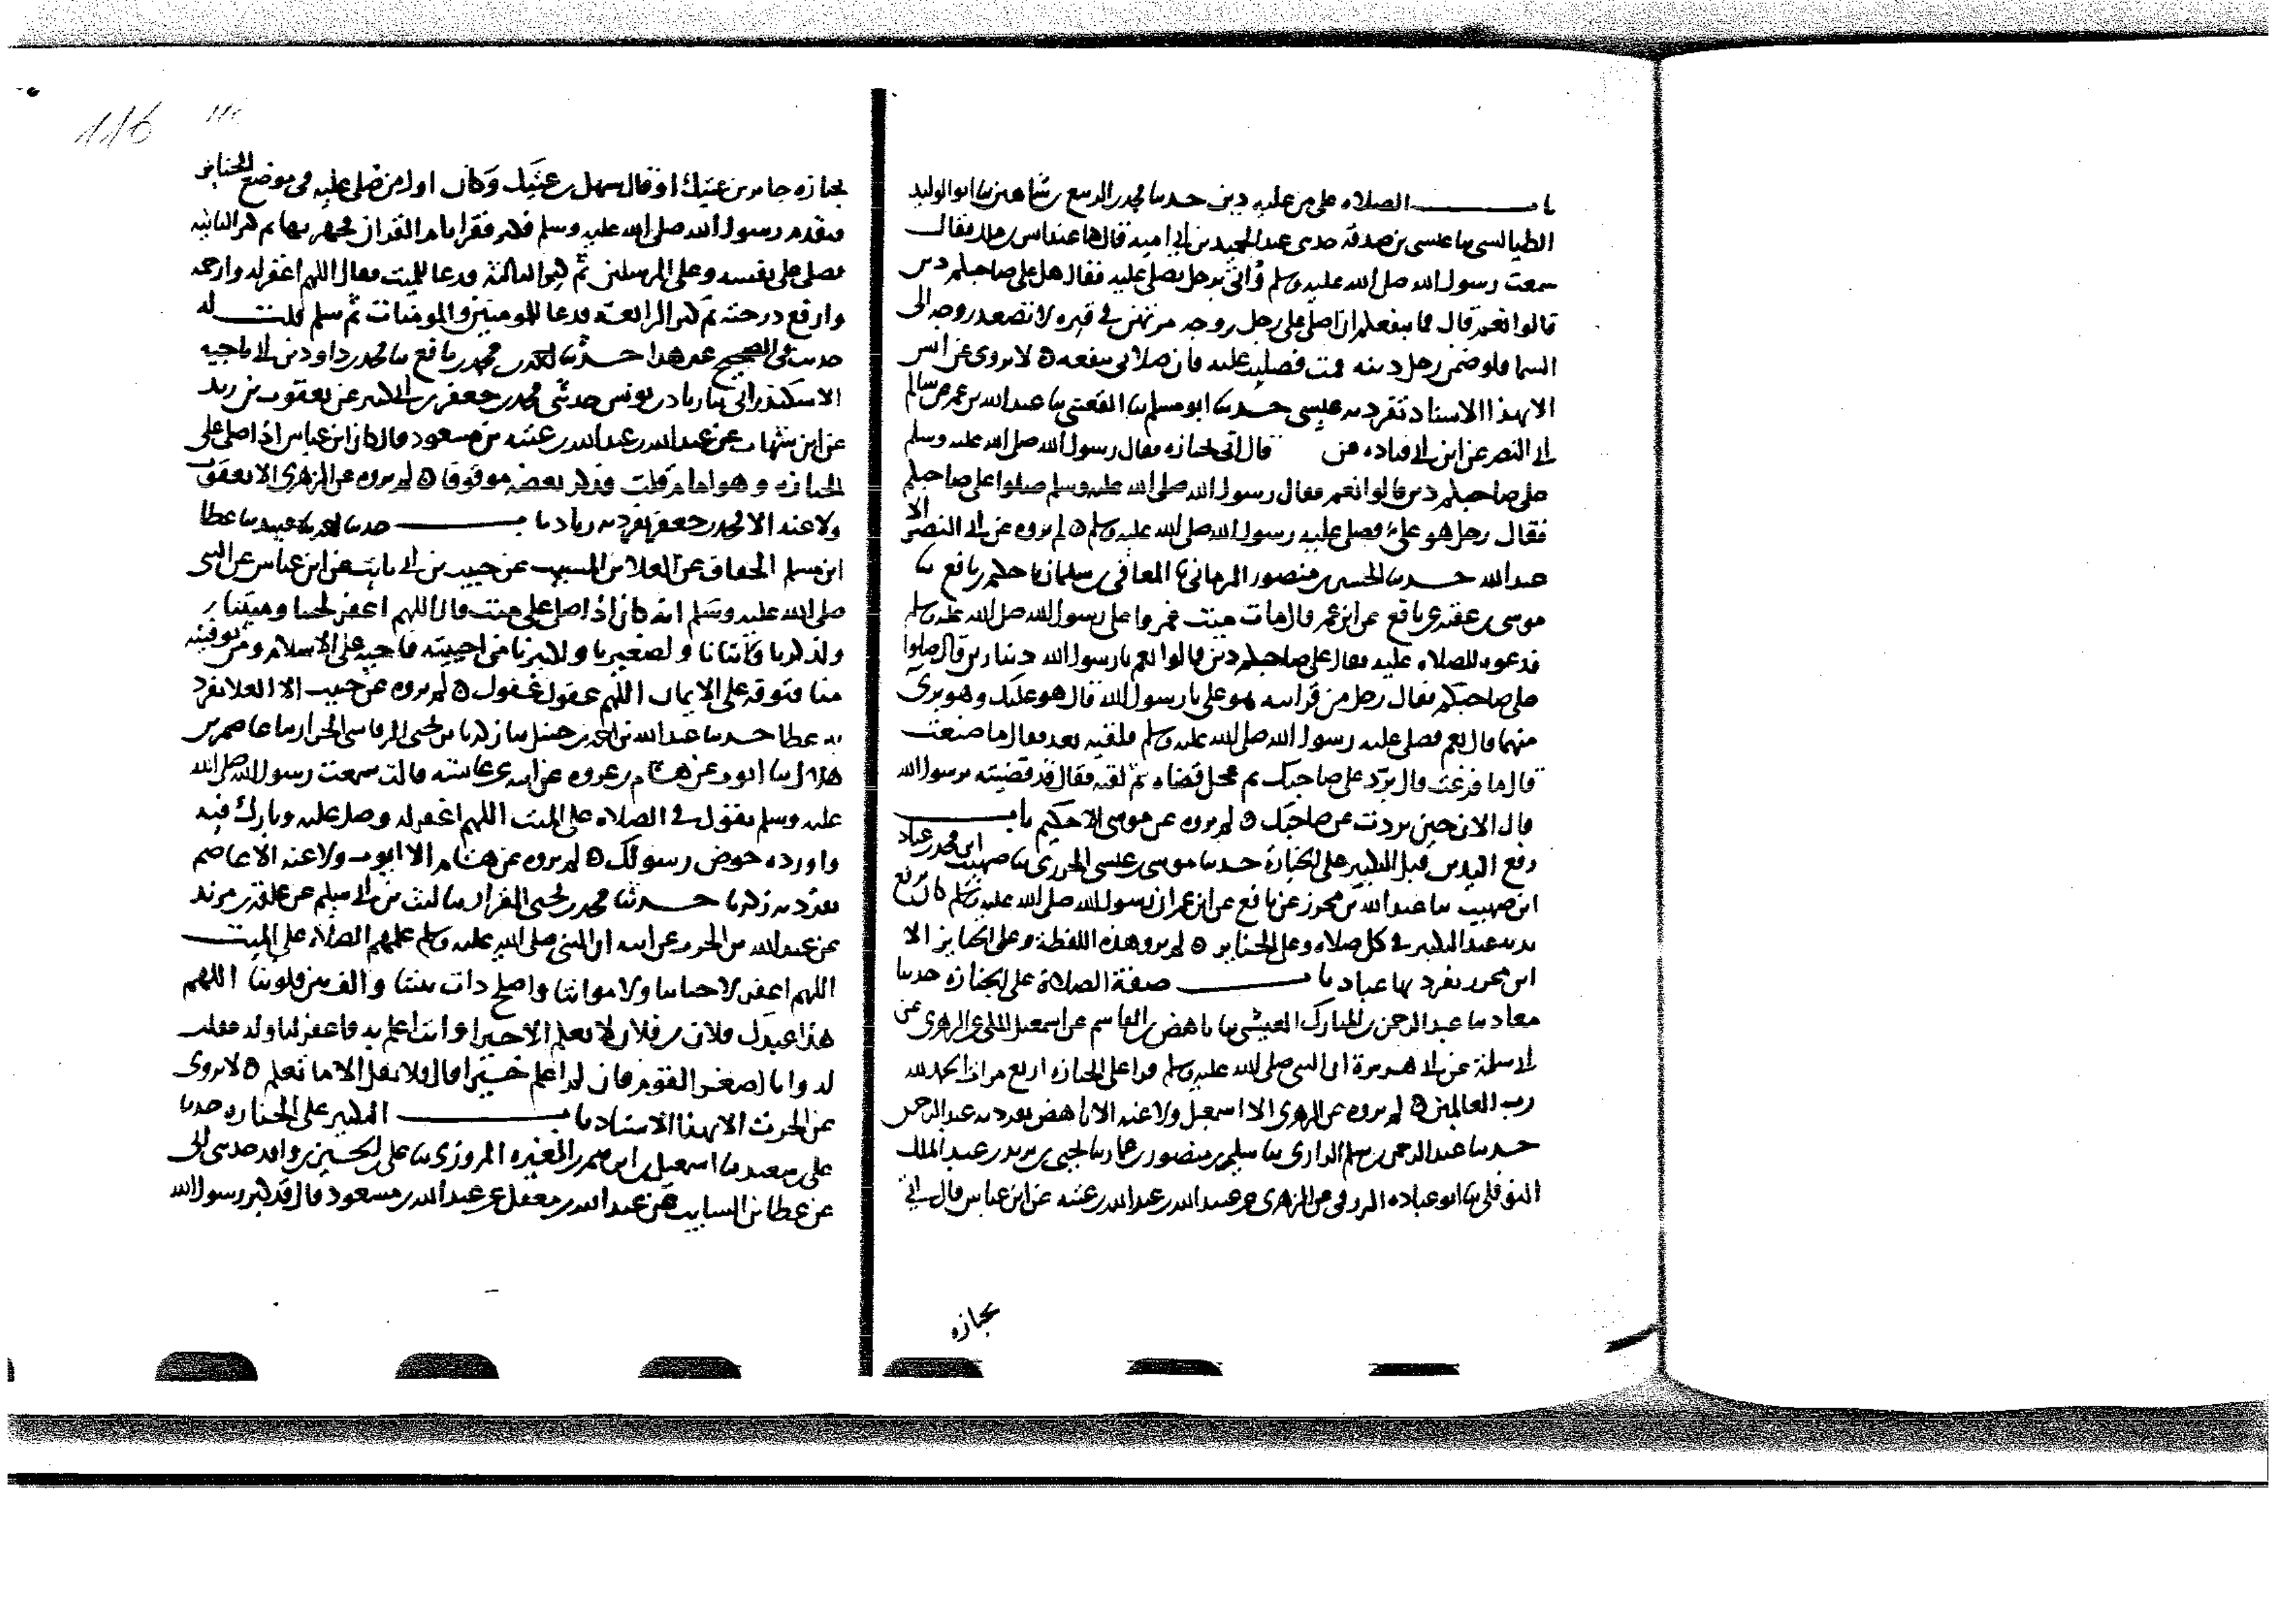 باب الصلاه على من عليه دين حدثنا محمد بن الربيع بن شاهين ثنا ابو الوليد
الطيالسي ثنا عيسى بن صدقه حدثني عبد الحميد بن ابي اميه قال كنا عند انس بن مالك فقال
سمعت رسول الله صلى الله عليه وسلم وأتي برجل يصلي عليه فقال هل على صاحبكم دين
قالوا نعم قال فما ينفعكم ان اصلي على رجل روحه مرتهن في قبره لا تصعد روحه الى
السما فلو ضمن رجل دينه قمت فصليت عليه فان صلاتي تنفعه لا يروى عن انس
الا بهذا الاسناد تفرد به عيسى حدثنا ابو مسلم ثنا القعنبي ثنا عبد الله بن عمر عن سالم
ابي النضر عن ابن ابي قتاده عن قال اتى بجنازه فقال رسول الله صلى الله عليه وسلم
على صاحبكم دين قالوا نعم فقال رسول الله صلى الله عليه وسلم صلوا على صاحبكم
فقال رجل هو علي فصلى عليه رسول الله صلى الله عليه وسلم لم يروه عن ابي النضر الا
عبد الله حدثنا الحسين بن منصور الرماني ثنا المعافى بن سليمان ثنا حكيم بن نافع ثنا
موسى بن عقبه عن نافع عن ابن عمر قال مات ميت فمروا على رسول الله صلى الله عليه وسلم
فدعوه للصلاه عليه فقال على صاحبكم دين قالوا نعم يا رسول الله ديناران قال صلوا
على صاحبكم فقال رجل من قرابته هو علي يا رسول الله قال هو عليك وهو بريء
منهما قال نعم فصلى عليه رسول الله صلى الله عليه وسلم فلقيه بعد فقال ما صنعت
قال ما فرغت قال برد على صاحبك ثم عجل قضاه ثم لقيه فقال قد قضيته يرسول الله
قال الان حين بردت عن صاحبك لم يروه عن موسى الا حكيم باب
رفع اليدين قبل التكبير على الجنازة حدثنا موسى بن عيسى الجزري ثنا صهيب ابن محمد بن عباد
ابن صهيب ثنا عبد الله بن محرز عن نافع عن ابن عمر ان رسول الله صلى الله عليه وسلم كان يرفع
يديه عند التكبير في كل صلاه وعلى الجنايز لم يرو هذه اللفظة وعلى الجنايز الا
ابن محرر تفرد بها عباد باب صفة الصلاة على الجنازه حدثنا
معاذ ثنا عبد الرحمن بن المبارك العيشي ثنا ناهض بن القاسم عن اسمعيل المكي عن الزهري عن
ابي سلمة عن ابي هريرة ان النبي صلى الله عليه وسلم قرا على الجنازه اربع مرات الحمد لله
رب العالمين لم يروه عن الزهري الا اسمعيل ولا عنه الا ناهض تفرد به عبد الرحمن
حدثنا عبد الرحمن بن سلم الرازي ثنا سليم بن منصور بن عمار ثنا يحيى بن يزيد بن عبد الملك
النوفلي ثنا ابو عباده الزرقي عن الزهري عن عبيد الله بن عبد الله بن عتبه عن ابن عباس قال اتي
بجنازه
116
بجنازه جابر بن عتيك او قال سهل بن عتيك وكان اول من صلي عليه في موضع الجنايز
فتقدم رسول الله صلى الله عليه وسلم فكبر فقرا بام القران فجهر بها ثم كبر الثانيه
فصلى على نفسه وعلى المرسلين ثم كبر الثالثة فدعا للميت فقال اللهم اغفر له وارحمه
وارفع درجته ثم كبر الرابعه فدعا للمومنين والمومنات ثم سلم قلت له
حديث في الصحيح غير هذا حدثنا احمد بن محمد بن نافع ثنا محمد بن داود بن ابي ناجيه
الاسكندراني ثنا زياد بن يونس حدثني محمد بن جعفر بن ابي كثير عن يعقوب بن زيد
عن ابن شهاب عن عبيد الله بن عبد الله بن عتبه بن مسعود قال كان ابن عباس اذا صلى على
الجنازه وهو امام قلت فذكر بعضه موقوفا لم يروه عن الزهري الا يعقوب
ولا عنه الا محمد بن جعفر تفرد به زياد باب حدثنا احمد ثنا عبيد ثنا عطا
ابن مسلم الخفاف عن العلا بن المسيب عن حبيب بن ابي ثابت عن ابن عباس عن النبي
صلى الله عليه وسلم انه كان اذا صلى على ميت قال اللهم اغفر لحينا وميتنا
ولذكرنا وانثانا ولصغيرنا ولكبيرنا من احييته فاحيه على الاسلام ومن توفيته
منا فتوفه على الايمان اللهم عفوك عفوك لم يروه عن حبيب الا العلا تفرد
به عطا حدثنا عبد الله بن احمد بن حنبل ثنا زكريا بن يحيى الرقاشي الخزاز ثنا عاصم بن
هلال ثنا ايوب عن هشام بن عروه عن ابيه عن عائشه قالت سمعت رسول الله صلى الله
عليه وسلم يقول في الصلاه على الميت اللهم اغفر له وصل عليه وبارك فيه
واورده حوض رسولك لم يروه عن هشام الا ايوب ولا عنه الا عاصم
تفرد به زكريا حدثنا محمد بن يحيى القزاز ثنا ليث بن ابي سليم عن علقمة بن مرثد
عن عبد الله بن الحرث عن ابيه ان النبي صلى الله عليه وسلم علمهم الصلاه على الميت
اللهم اغفر لاحيائنا ولامواتنا واصلح ذات بيننا والف بين قلوبنا اللهم
هذا عبدك فلان بن فلان لا نعلم الا خيرا وانت اعلم به فاغفر لنا وله فقلت
له وانا اصغر القوم فان لم اعلم خيرا قال فلا تقل الا ما تعلم لا يروى
عن الحرث الا بهذا الاسناد باب التكبير على الجنازه حدثنا
علي بن سعيد ثنا اسمعيل بن ابراهيم بن المغيره المروزي ثنا علي بن الحسين بن واقد حدثني ابي
عن عطا بن السايب عن عبد الله بن معقل عن عبد الله بن مسعود قال قد كبر رسول الله